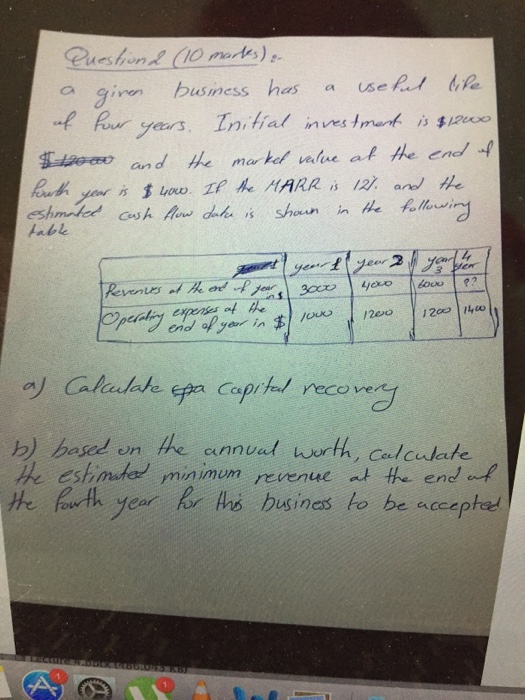 Question 2 (10 marks):-
a given business has a useful life
of four years. Initial investment is $12000
and the market value at the end of
fourth year is $4000. If the MARR is 12% and the
estimated cash flow data is shown in the following
table
year 1 year 2 year 3 4 year
Revenues at the end of year in $ 3000 4000 6000 ??
Operating expenses at the end of year in $ 1000 1200 1200 1400
a) Calculate capital recovery
b) based on the annual worth, calculate
the estimated minimum revenue at the end of
the fourth year for this business to be accepted